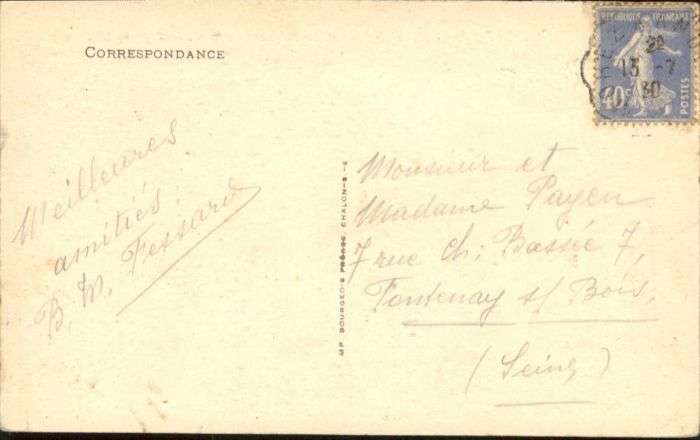 CORRESPONDANCE
RÉPUBLIQUE FRANÇAISE
20
13 -7
30
40c
POSTES
Meilleures
amitiés.
B M. Fessard
Monsieur et
Madame Payen
7 rue Ch: Bassée 7,
Fontenay s/ Bois,
(Seine)
MP BOURGEOIS FRÈRES CHALON-S-S